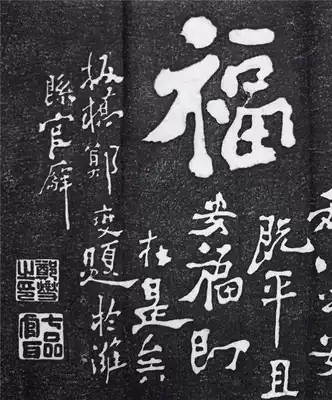 福
既平且
安福即
在是矣
板橋鄭燮題於濰
縣官廨
鄭燮之印
七品官耳